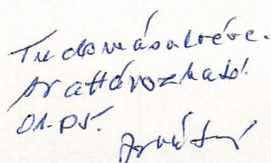 Tudomásulvéve.
Irattározható!
01.05.